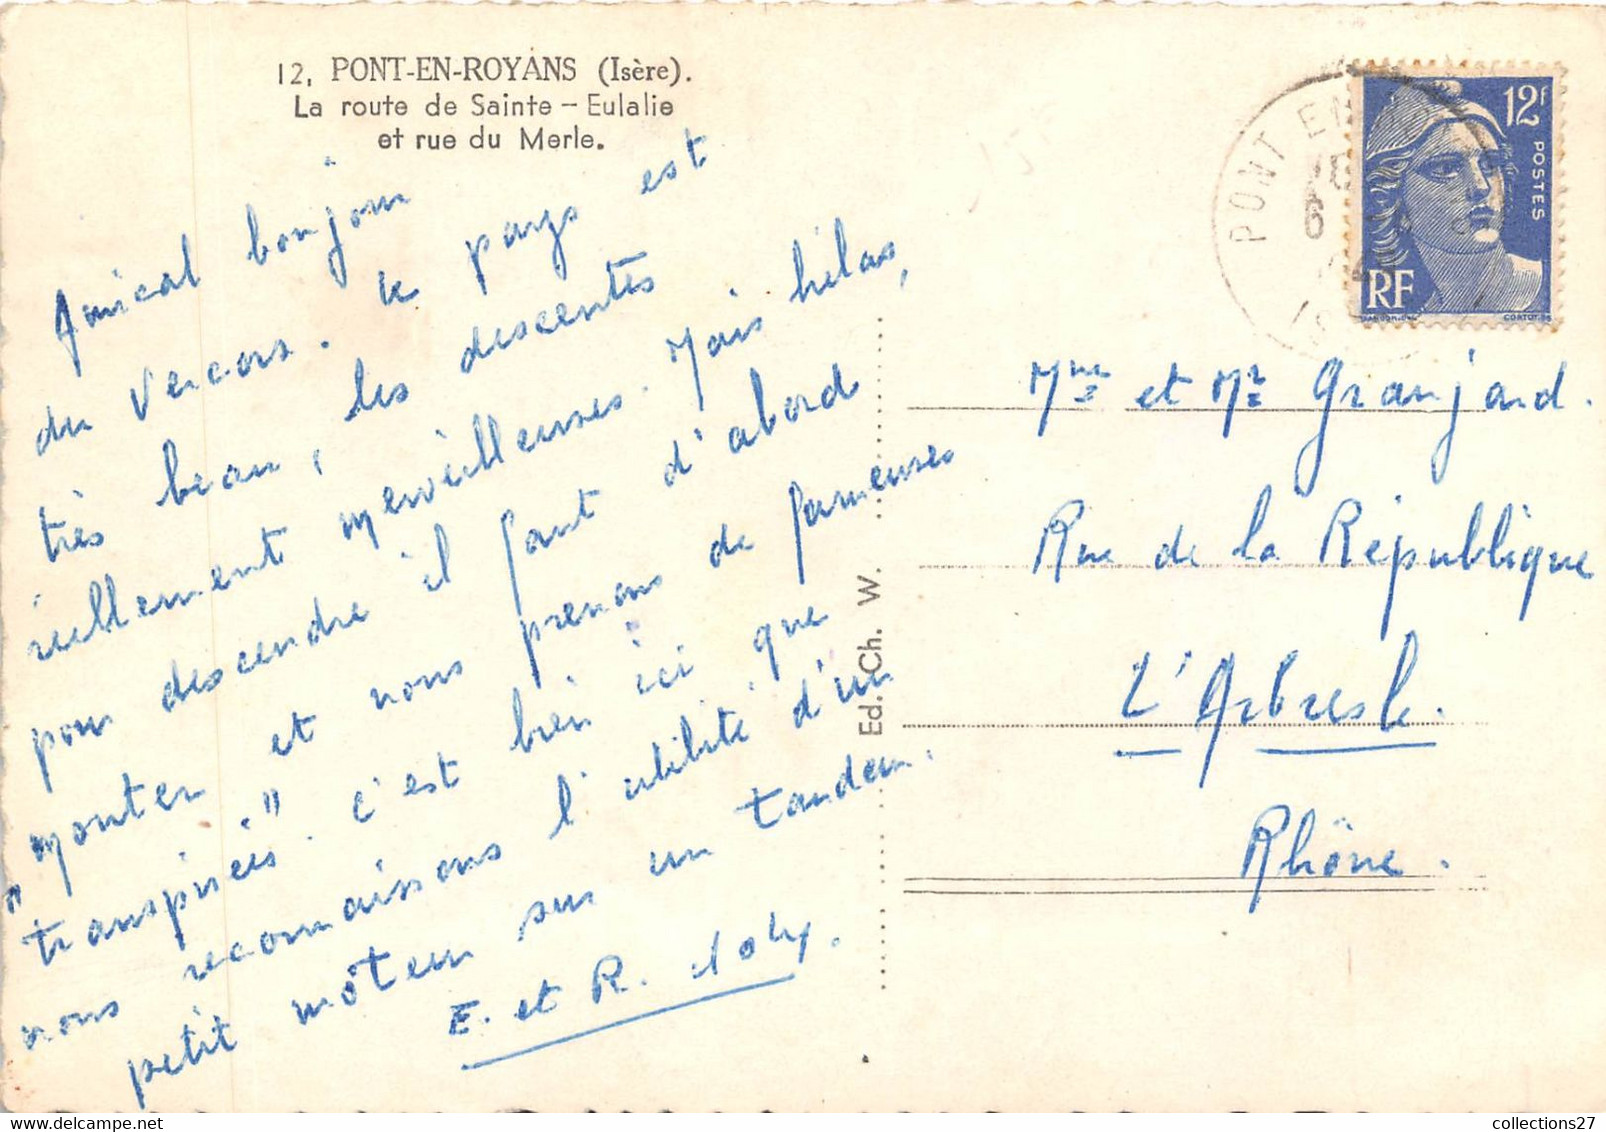 12, PONT-EN-ROYANS (Isère).
La route de Sainte-Eulalie
et rue du Merle.
Amical bonjour
du Vercors. Le pays est
très beau, les descentes
réellement merveilleuses. Mais hélas,
pour descendre il faut d'abord
monter et nous prenons de fameuses
"transpirées". C'est bien ici que
nous reconnaissons l'utilité d'un
petit môteur sur un tandem.
E. et R.
Ed. Ch. W.
PONT EN
12F
POSTES
RF
Mme et Mr Granjard.
Rue de la République
L'Arbresle.
Rhône.
collections27